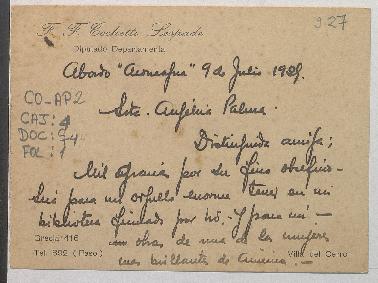 927
F. F. Cochette Lespade
Diputado Departamental
Abordo "Aconcagua" 9 de Julio 1929.
CO-AP2
CAJ: 4
DOC: 94
FOL: 1
Srta. Angélica Palma.
Distinguida amiga;
Mil gracias por su fino obsequio-
Será para mi orgullo enorme tener en mi
biblioteca firmado por Vd. - Y para mi -
una obra de una de las mujeres
mas brillantes de America. -
Grecia 416
Tel. 692 (Paso)
Villa del Cerro